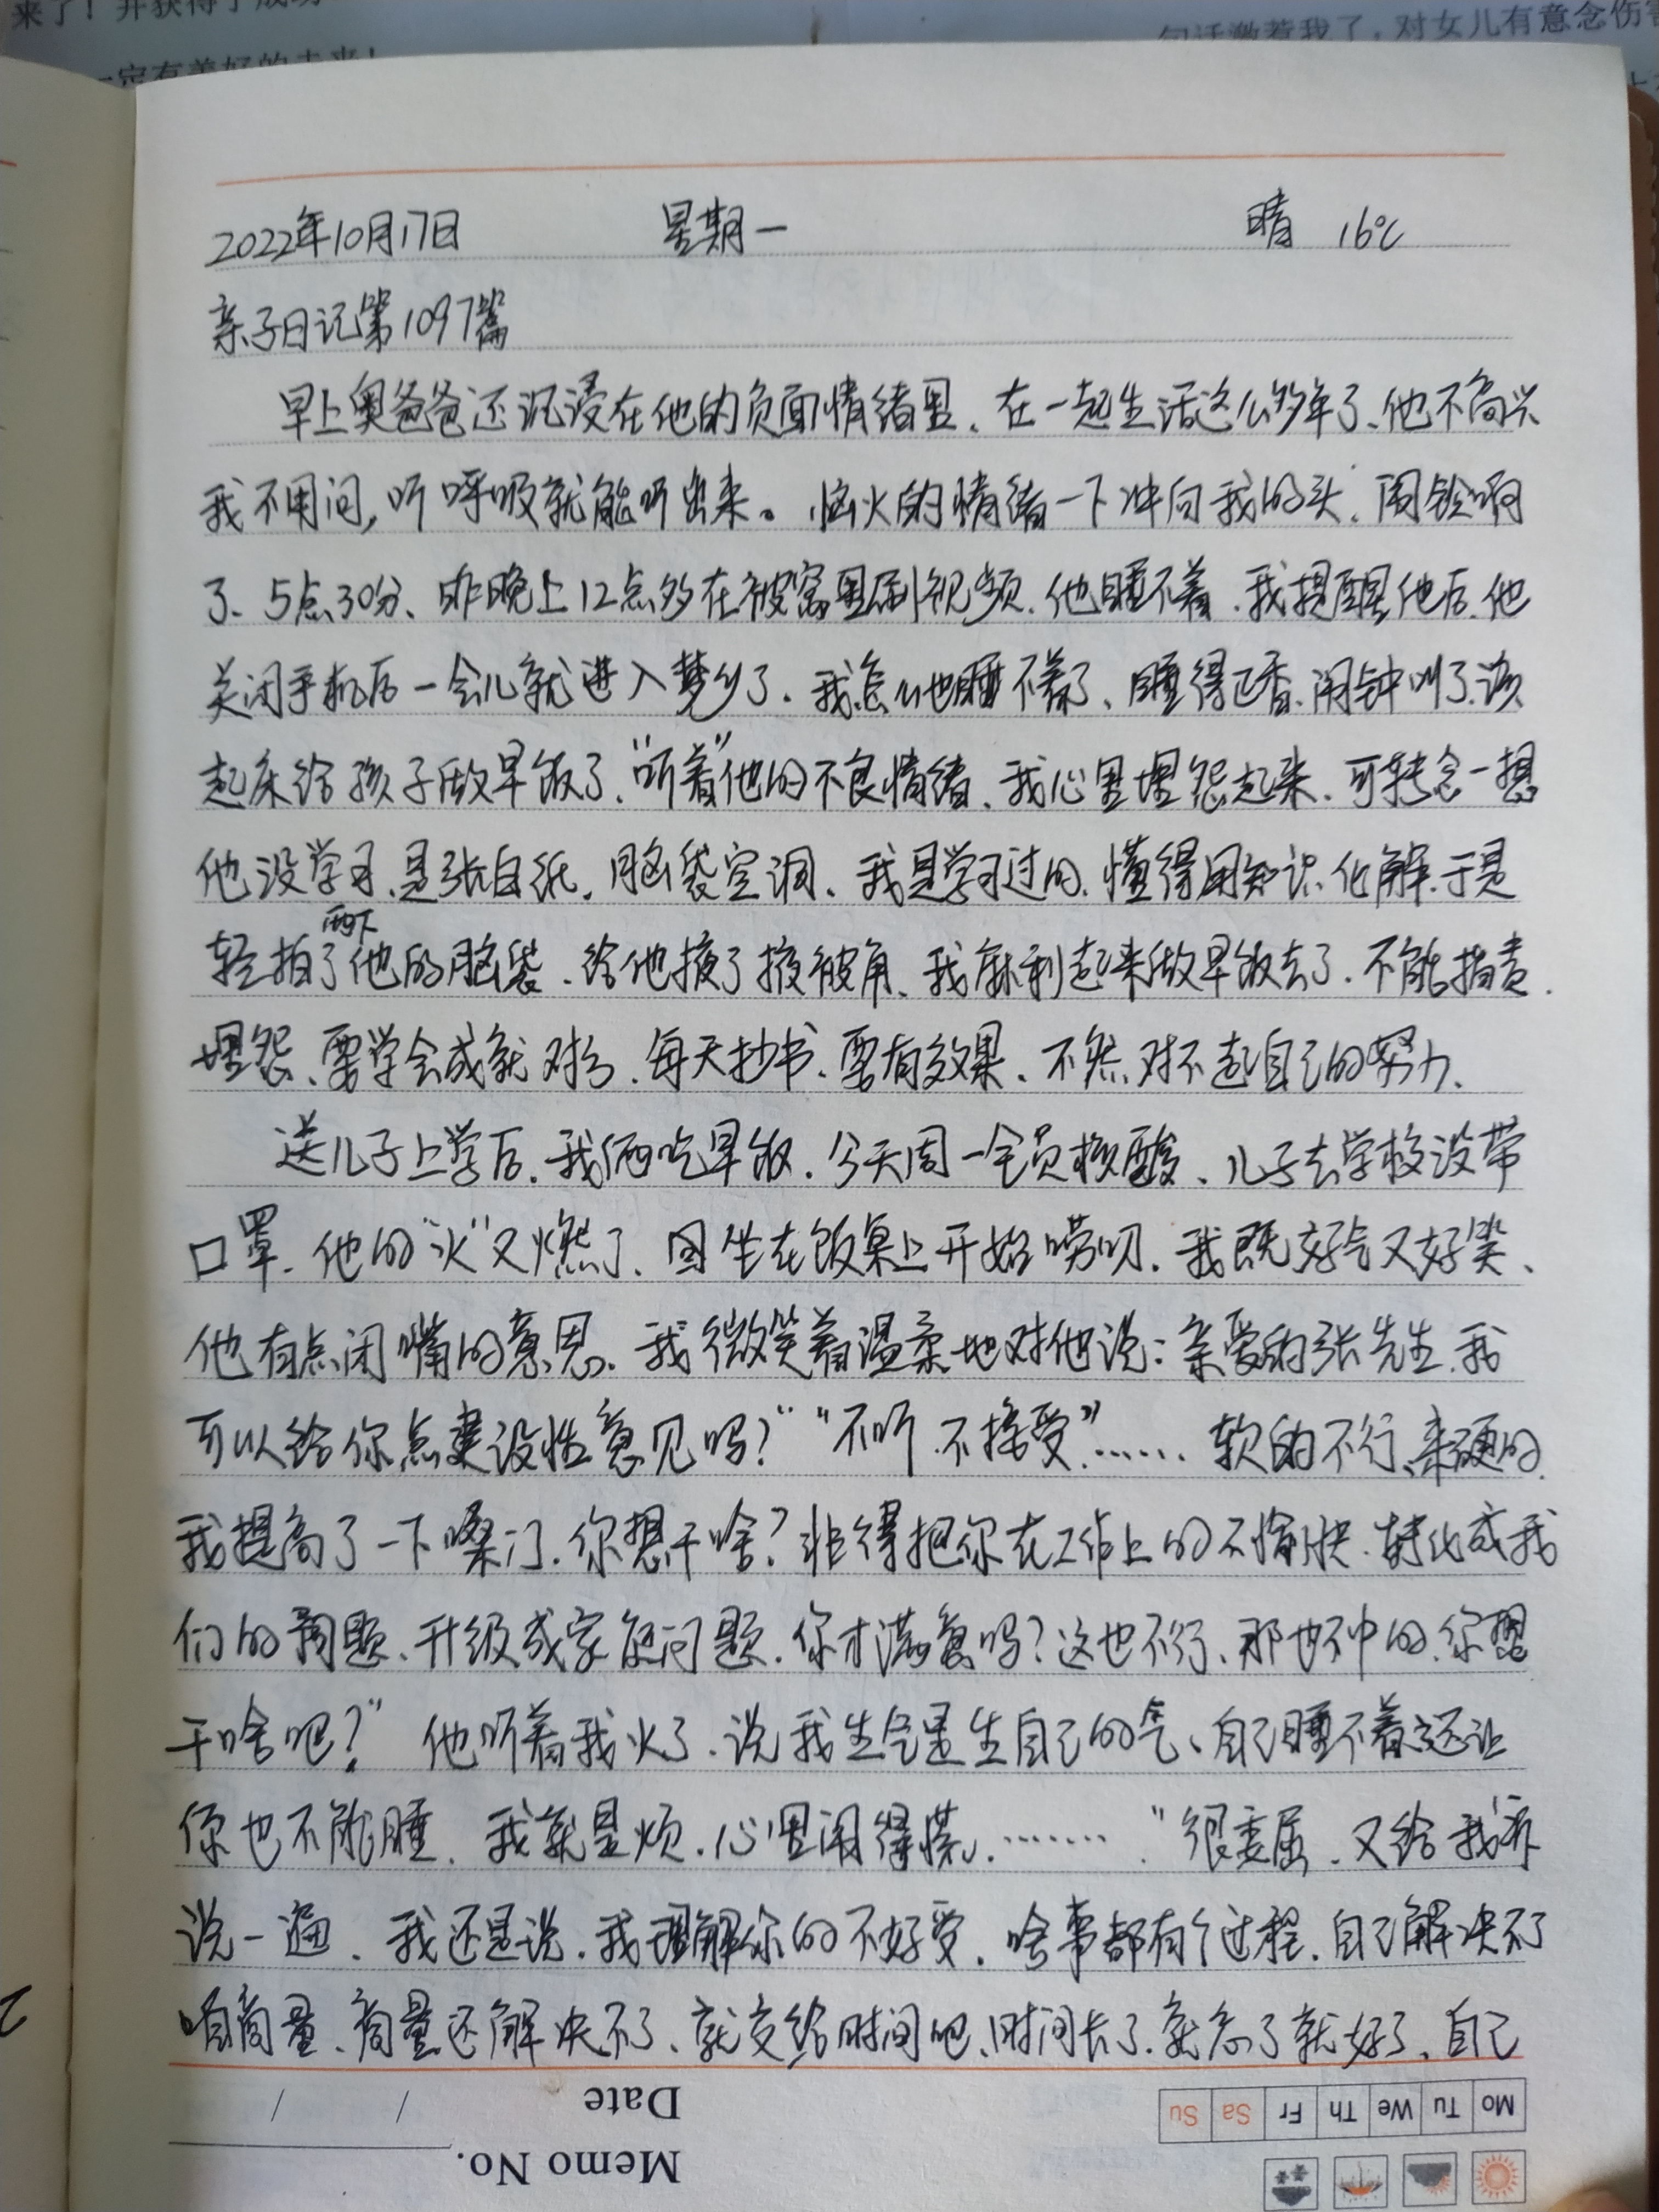 来了！并获得了成功
一定有美好的未来！
句话激惹我了，对女儿有意念伤害
2022年10月17日 星期一 晴 16℃
亲子日记第1097篇
早上奥爸爸还沉浸在他的负面情绪里、在一起生活这么多年了、他不高兴
我不用问,听呼吸就能听出来。恼火的情绪一下冲向我的头、闹铃响
了、5点30分、昨晚上12点多在被窝里刷视频、他睡不着、我提醒他后、他
关闭手机后一会儿就进入梦乡了、我怎么也睡不着了、睡得正香、闹钟叫了、该
起床给孩子做早饭了、"听着"他的不良情绪、我心里埋怨起来、可转念一想
他没学习、是张白纸、脑袋空洞、我是学习过的、懂得用知识化解、于是
轻拍了两下他的脑袋、给他掖了掖被角、我麻利起来做早饭去了、不能指责、
埋怨、要学会成就对方、每天抄书、要有效果、不然对不起自己的努力、
送儿子上学后、我俩吃早饭、今天周一全员核酸、儿子去学校没带
口罩、他的"火"又燃了、因坐在饭桌上开始唠叨、我既好气又好笑、
他有点闭嘴的意思、我微笑着温柔地对他说：亲爱的张先生、我
可以给你点建设性意见吗？" "不听、不接受"…… 软的不行、来硬的、
我提高了一下嗓门、你想干啥？非得把你在工作上的不愉快、转化成我
们的问题、升级成家庭问题、你才满意吗？这也不行、那也不中的、你想
干啥吧？" 他听着我火了、说我生气是生自己的气、自己睡不着还让
你也不能睡、我就是烦、心里闹得慌、……"很委屈、又给我诉
说一遍、我还是说、我理解你的不好受、啥事都有个过程、自己解决不了
咱商量、商量还解决不了、就交给时间吧、时间长了、就忘了就好了、自己
Date / /
Memo No.
Mo Tu We Th Fr Sa Su